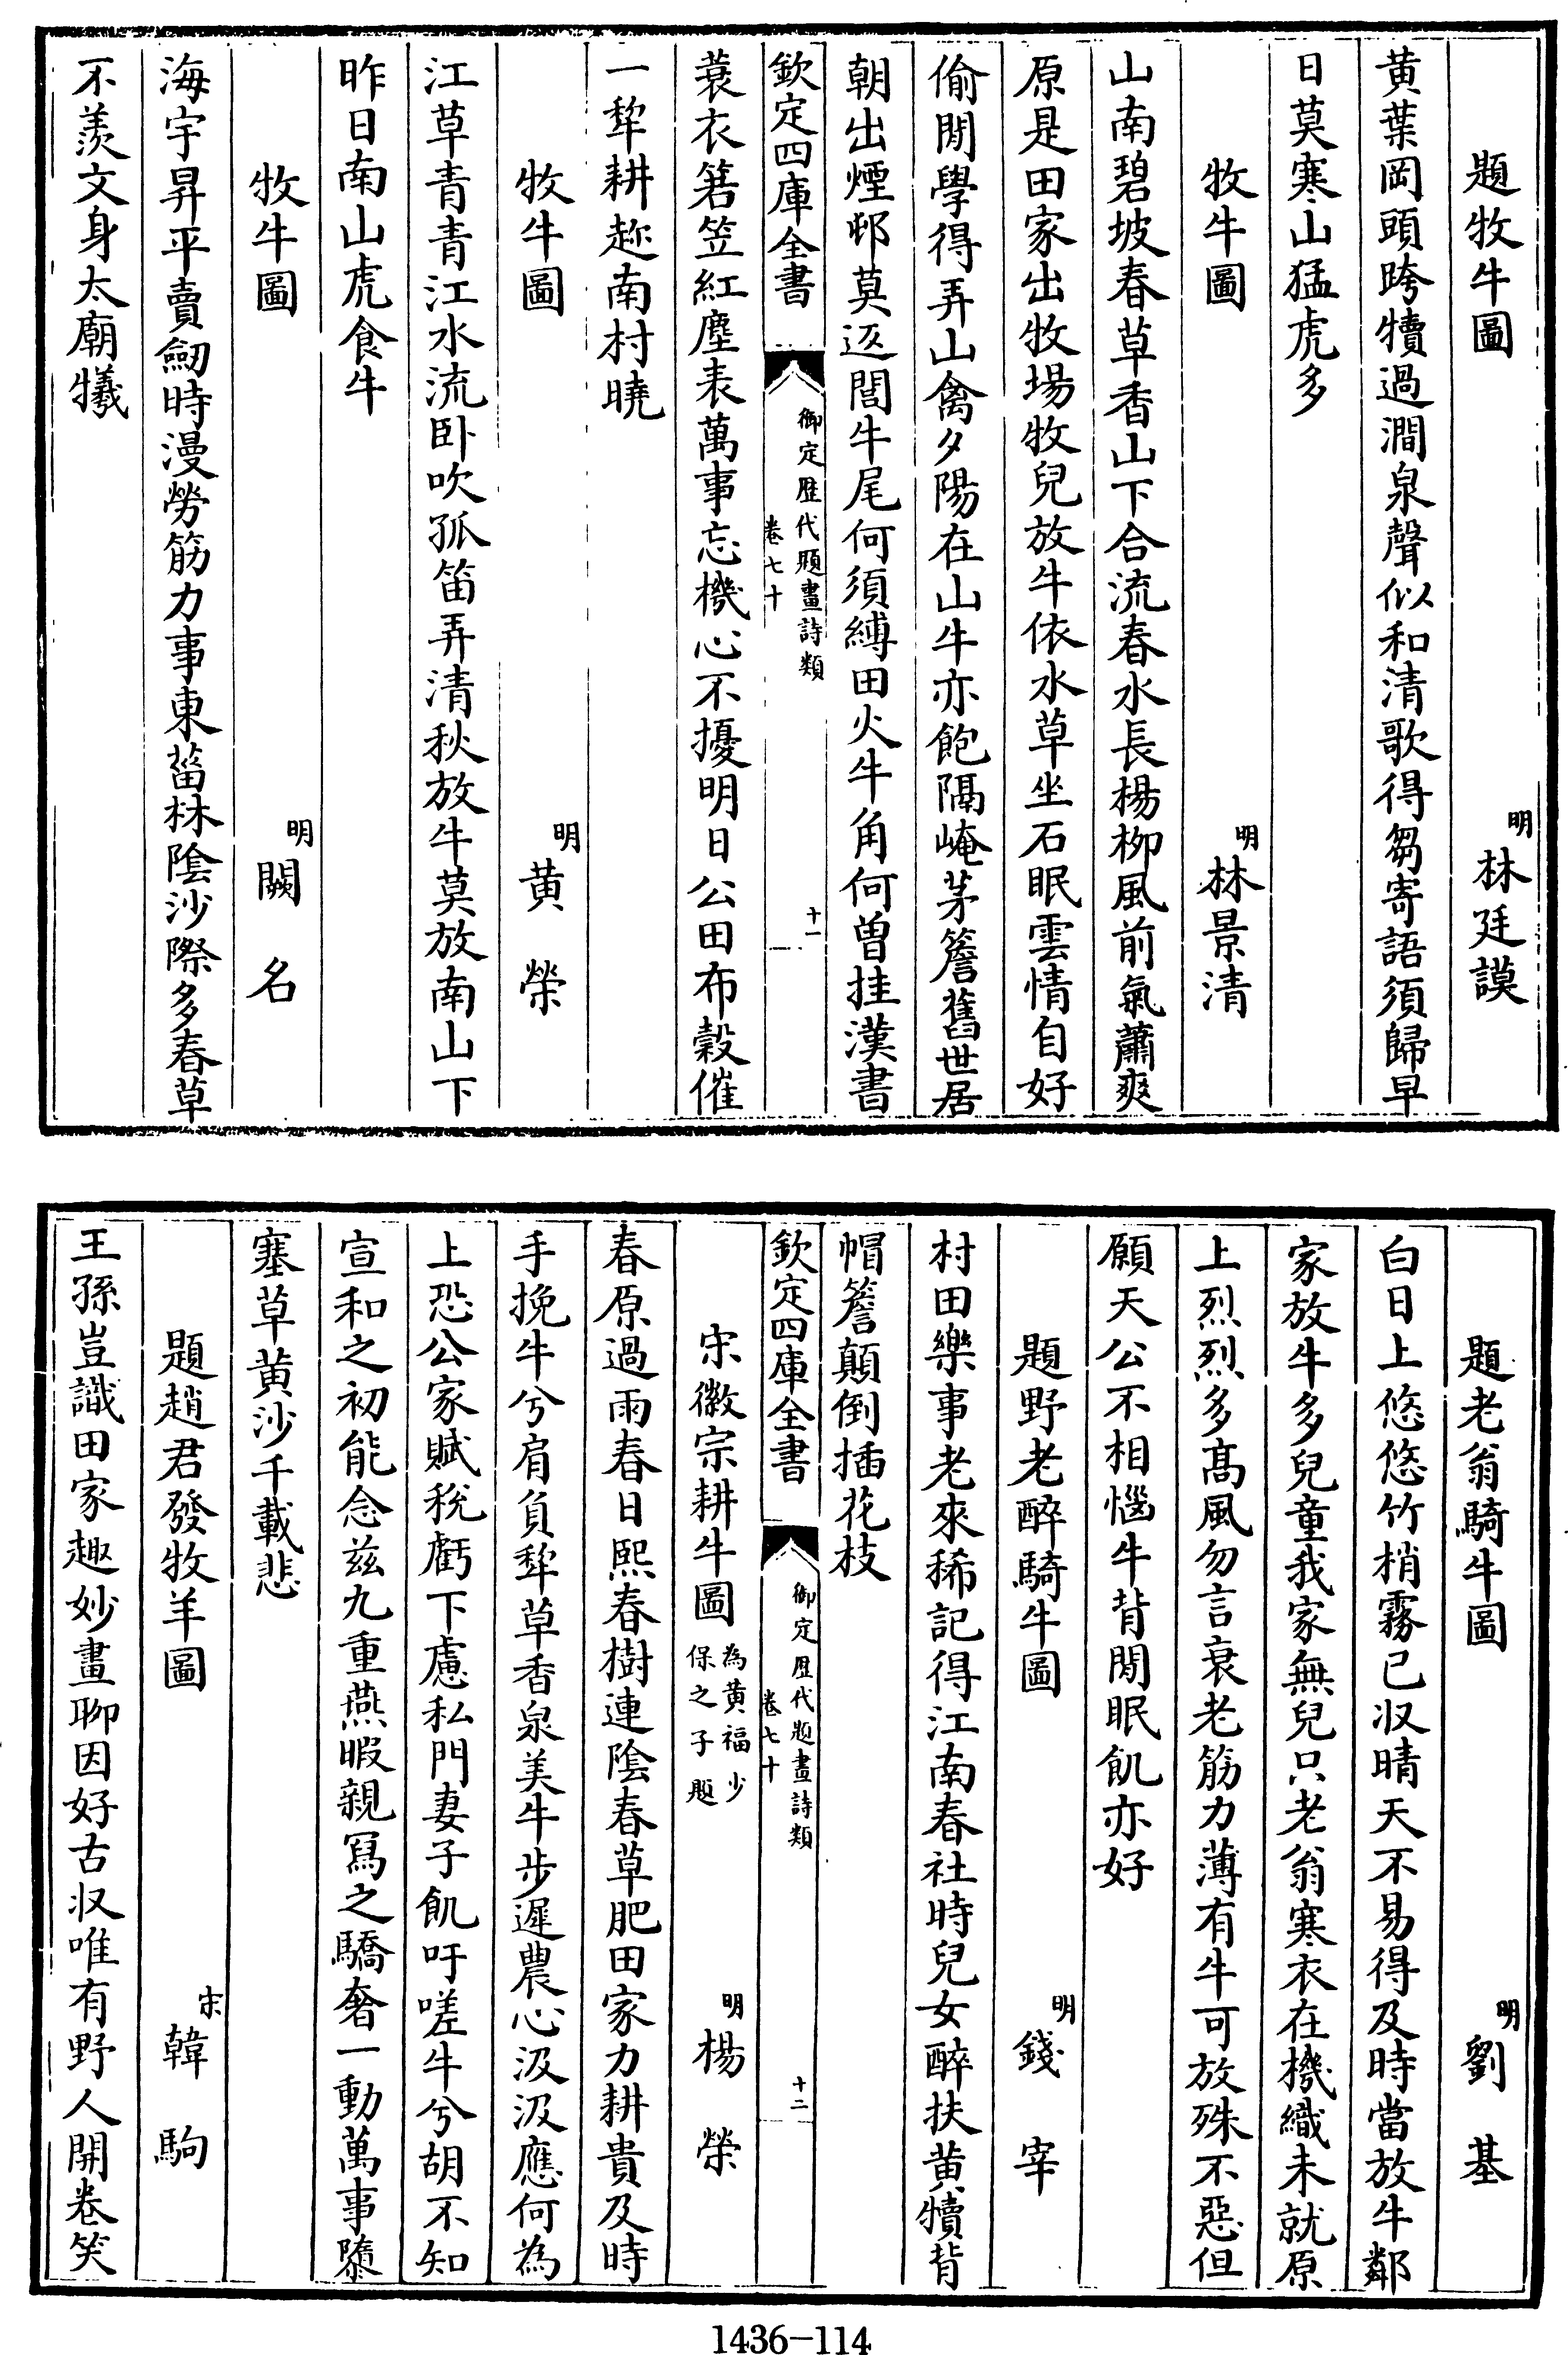 題牧牛圖
明
林廷謨
黄葉岡頭跨犢過澗泉聲似和清歌得芻寄語須歸早
日莫寒山猛虎多
牧牛圖
明
林景清
山南碧坡春草香山下合流春水長楊柳風前氣蕭爽
原是田家出牧場牧兒放牛依水草坐石眠雲情自好
偷閒學得弄山禽夕陽在山牛亦飽隔崦茅簷舊世居
朝出煙邨莫返閭牛尾何須縛田火牛角何曽挂漢書
欽定四庫全書
御定歴代題畫詩類
卷七十
十一
蓑衣箬笠紅塵表萬事忘機心不擾明日公田布穀催
一犂耕趂南村曉
牧牛圖
明
黄榮
江草青青江水流卧吹孤笛弄清秋放牛莫放南山下
昨日南山虎食牛
牧牛圖
明
闕名
海宇昇平賣劒時漫勞筋力事東菑林陰沙際多春草
不羨文身太廟犧
題老翁騎牛圖
明
劉基
白日上悠悠竹梢霧已収晴天不易得及時當放牛鄰
家放牛多兒童我家無兒只老翁寒衣在機織未就原
上烈烈多髙風勿言衰老筋力薄有牛可放殊不惡但
願天公不相惱牛背閒眠飢亦好
題野老醉騎牛圖
明
錢宰
村田樂事老來稀記得江南春社時兒女醉扶黄犢背
帽簷顛倒插花枝
欽定四庫全書
御定歴代題畫詩類
卷七十
十二
宋徽宗耕牛圖
為黄福少
保之子題
明
楊榮
春原過雨春日熙春樹連陰春草肥田家力耕貴及時
手挽牛兮肩負犂草香泉美牛步遲農心汲汲應何為
上恐公家賦稅虧下慮私門妻子飢吁嗟牛兮胡不知
宣和之初能念兹九重燕暇親寫之驕奢一動萬事隳
塞草黄沙千載悲
題趙君發牧羊圖
宋
韓駒
王孫豈識田家趣妙畫聊因好古収唯有野人開卷笑
1436-114